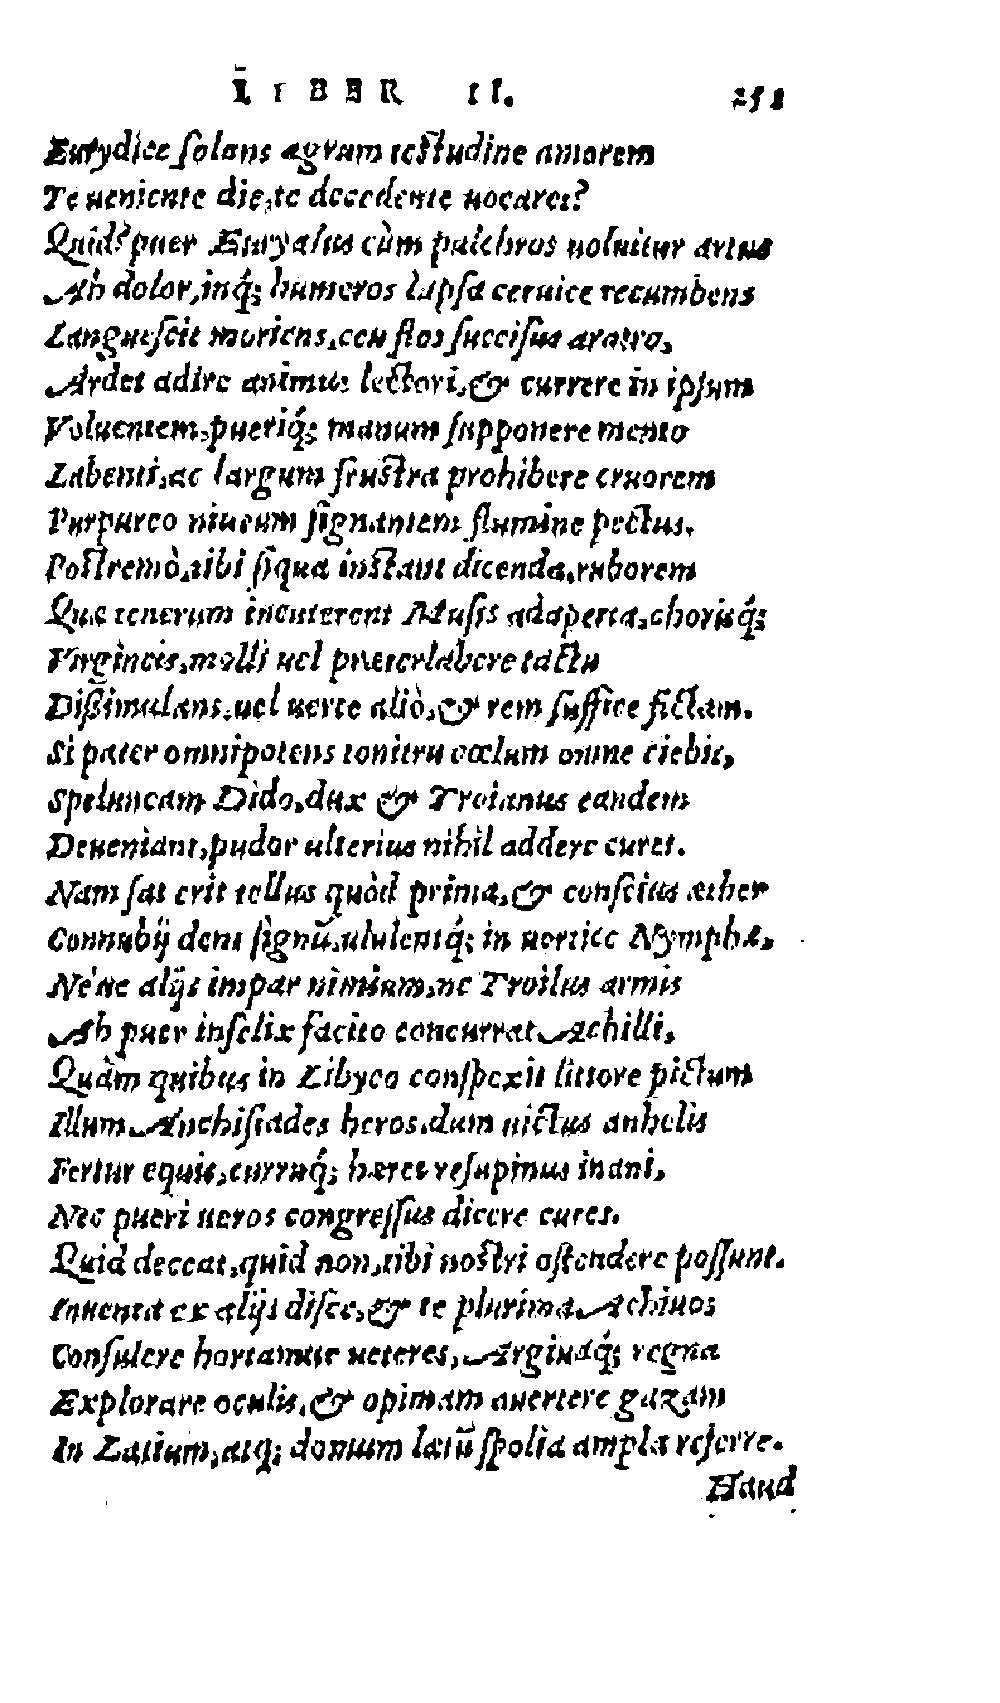 LIBER II. 251
Eurydice ſolans ægrum teſtudine amorem
Te ueniente die, te decedente uocaret?
Quid? puer Euryalus cùm pulchros uoluitur artus
Ah dolor, inq́; humeros lapſa ceruice recumbens
Langueſcit moriens, ceu flos ſucciſus aratro,
Ardet adire animus lectori, & currere in ipſum
Voluentem, pueriq́; manum ſupponere mento
Labenti, ac largum fruſtra prohibere cruorem
Purpureo niueum ſignantem flumine pectus.
Poſtremò, tibi ſiqua inſtant dicenda, ruborem
Quæ tenerum incuterent Muſis adaperta, chorisq́;
Virgineis, molli uel præterlabere tactu
Dißimulans, uel uerte aliò, & rem ſuffice fictam.
Si pater omnipotens tonitru cœlum omne ciebit,
Speluncam Dido, dux & Troianus eandem
Deueniant, pudor ulterius nihil addere curet.
Nam ſat erit tellus quòd prima, & conſcius æther
Connubij dent ſignū, ululentq́; in uertice Nymphæ,
Né ue alijs impar nimium, ne Troilus armis
Ah puer infelix facito concurrat Achilli,
Quàm quibus in Libyco conſpexit littore pictum
Illum Anchiſiades heros, dum uictus anhelis
Fertur equis, curruq́; hæret reſupinus inani,
Nec pueri ueros congreſſus dicere cures.
Quid deceat, quid non, tibi noſtri oſtendere poſſunt.
Inuenta ex alijs diſce, & te plurima Achiuos
Conſulere hortamur ueteres, Argiuaq́; regna
Explorare oculis, & opimam auertere gazam
In Latium, atq; domum lætū ſpolia ampla referre.
Haud